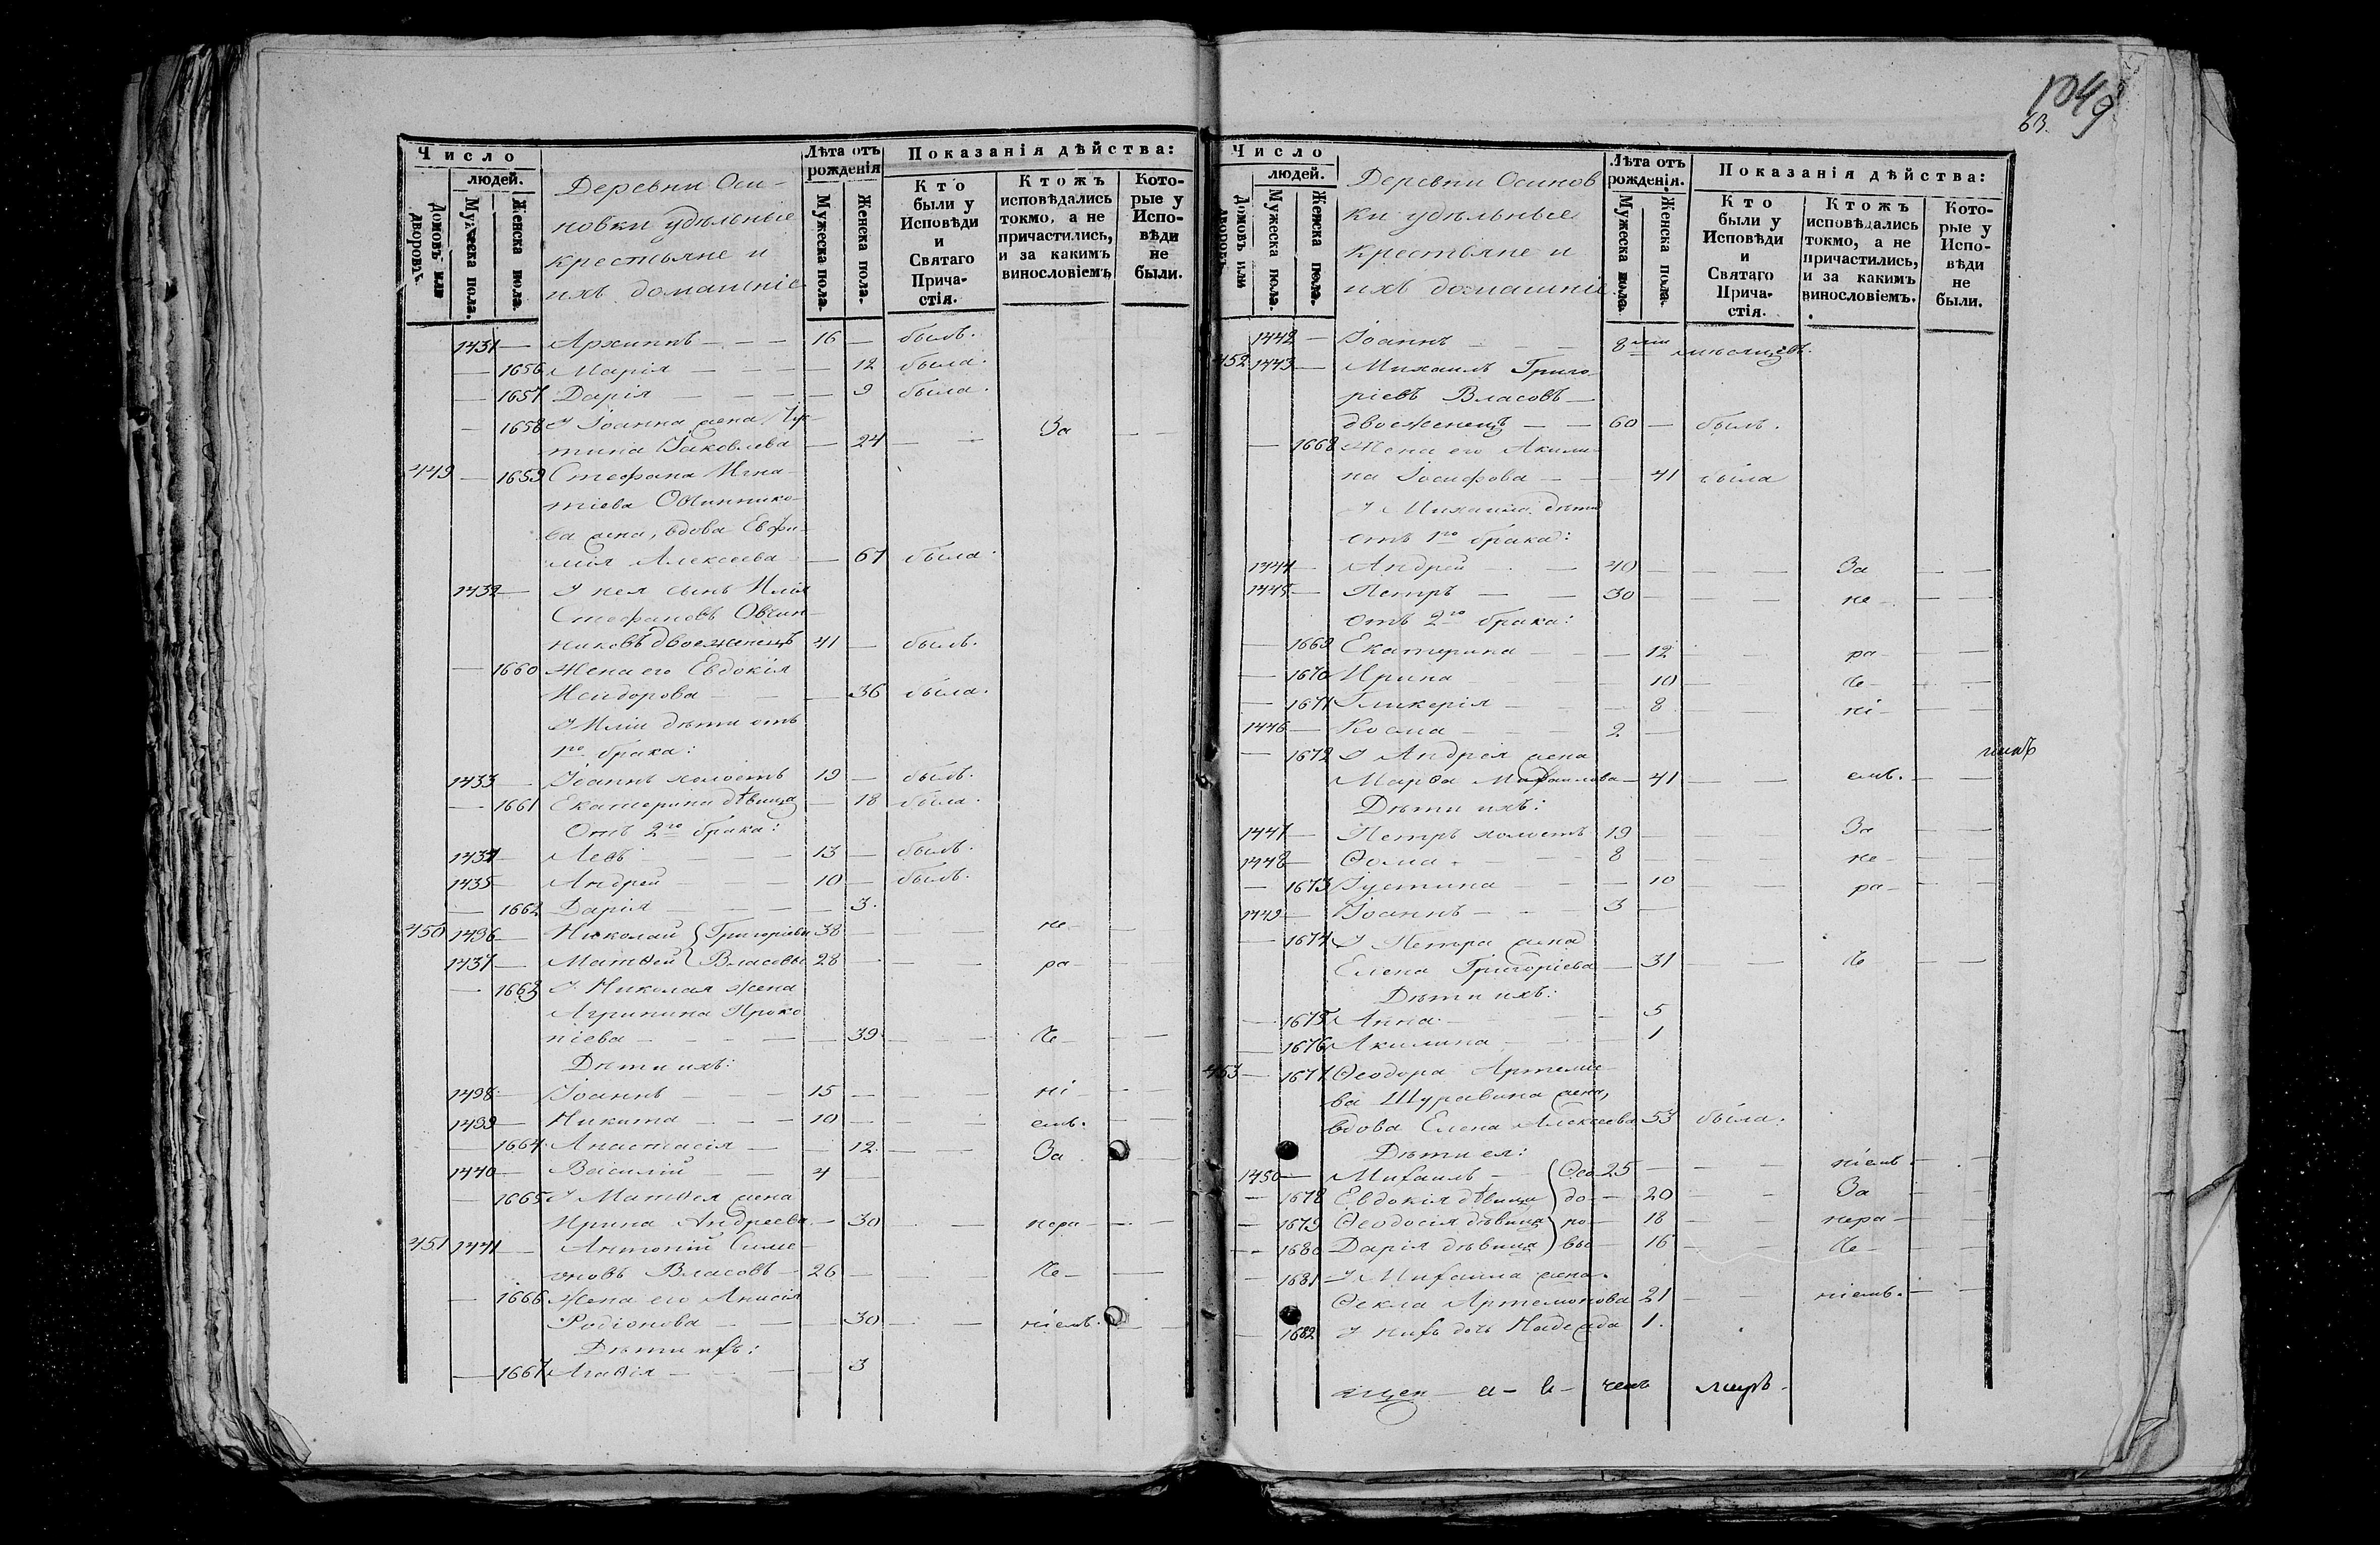 1049
63.
Число
людей.
Домовъ или дворовъ.
Мужеска пола.
Женска пола.
Деревни Оси-
новки удѣльные
крестьяне и
ихъ домашніе
Лѣта отъ рожденія
Мужеска пола.
Женска пола.
Показанія дѣйства:
Кто были у Исповѣди и Святаго Прича-стія.
Ктожъ исповѣдались токмо, а не причастились, и за какимъ винословіемъ.
Кото-рые у Испо-вѣди не были.
1431 — Архиппъ — — — 16 — былъ.
— 1656 Марія — — — — 12 была.
— 1657 Дарія — — — — 9 была.
— 1658 У Іоанна жена
Іаковлева — 24 — — За — —
449 — 1659 Стефана Игна-
тіева Овчиннико-
ва жена, вдова Евфи-
мія Алексеева — 67 была.
1432 — У нея сынъ Илья
Стефановъ Овчин-
никовъ двоеженецъ 41 — былъ.
— 1660 Жена его Евдокія
Исидорова — — — 36 была.
У Иліи дѣти отъ
1го брака:
1433 — Іоаннъ холостъ 19 — былъ.
— 1661 Екатерина дѣвица — 18 была.
Отъ 2го брака:
1434 — Левъ — — — — 13 — былъ.
1435 — Андрей — — — 10 — былъ.
— 1662 Дарія — — — — 3.
450 1436 — Николай Григорьевы 38 — — — не —
1437 — Матѳей Власовы 28 — — — ра —
— 1663 У Николая жена
Агрипина Проко
піева — — — — — 39 — — — че — —
Дѣти ихъ:
1438 — Іоаннъ — — — 15 — — — ні — —
1439 — Никита — — — 10 — — — емъ. —
— 1664 Анастасія — — 12. — — За —
1440 — Василій — 4 —
— 1665 У Матѳея жена
Ирина Андреева — 30 — — нера — — —
451 1441 — Антоній Симе-
оновъ Власовъ — 26 — — — че — —
— 1666 Жена его Анисія
Родіонова — — — 30 — — ніемъ. — —
Дѣти ихъ:
— 1667 Агаѳія — — — — 3
Число
людей.
Домовъ или дворовъ.
Мужеска пола.
Женска пола.
Деревни Осинов
ки удѣльные
крестьяне и
ихъ домашніе.
Лѣта отъ рожденія.
Мужеска пола.
Женска пола.
Показанія дѣйства:
Кто были у Исповѣди и Святаго Прича-стія.
Ктожъ исповѣдались токмо, а не причастились, и за какимъ винословіемъ.
Кото-рые у Испо-вѣди не были.
1442 — Іоаннъ — — — 8ми мѣсяцевъ.
452 1443 — Михаилъ Григо-
ріевъ Власовъ —
двоеженецъ — — 60 — былъ.
— 1668 Жена его Акили-
на Іосифова — — — 41 была
У Михаила дѣти
отъ 1го брака:
1444 — Андрей — — 40 — — — За — —
1445 — Петръ — — 30 — — — не — — —
отъ 2го брака:
— 1669 Екатерина — — — 12 — — ра — —
— 1670 Ирина — — — — 10 — че — — —
— 1671 Гликерія — — — 8 — ні — — —
1446 — Косма — — — 2 —
— 1672 У Андрея жена
Марѳа Михаилова — 41 — — емъ. — —
Дѣти ихъ:
1447 — Петръ холостъ 19 — — — За — —
1448 — Ѳома — — — 8 — — — не — —
— 1673 Іустина — — — 10 — — ра — — —
1449 — Іоаннъ — — — 3 —
— 1674 У Петра жена
Елена Григоріева — 31 — — че — — —
Дѣти ихъ:
— 1675 Анна — — 5
— 1676 Акилина — — 1
453 — 1677 Ѳеодора Артемье-
ва Шуравина жена,
вдова Елена Алексеева 53 была.
Дѣти ея:
1450 — Михаилъ — Ѳео 25 — — — ніемъ. — —
— 1678 Евдокія дѣвица до — 20 — — За — —
— 1679 Ѳеодосія дѣвица ро — 18 — — нера — —
— 1680 Дарія дѣвица вы — 16 — — че — — —
— 1681 У Михаила жена
Ѳекла Артемонова 21 — — ніемъ. — —
— 1682 У нихъ дочь Надежда 1.